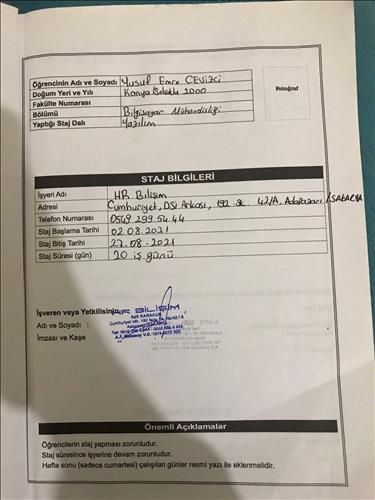 Öğrencinin Adı ve Soyadı Yusuf Emre CEVİZCİ
Doğum Yeri ve Yılı Konya Selçuklu 2000
Fakülte Numarası
Bölümü Bilgisayar Mühendisliği
Yaptığı Staj Dalı Yazılım
Fotoğraf
STAJ BİLGİLERİ
İşyeri Adı HR Bilişim
Adresi Cumhuriyet, DSİ Arkası, 192. Sk. 42/A, Adapazarı/SAKARYA
Telefon Numarası 0549 299 54 44
Staj Başlama Tarihi 02.08.2021
Staj Bitiş Tarihi 27.08.2021
Staj Süresi (gün) 20 iş günü
İşveren veya Yetkilisinin
BİLİŞİM
Adı ve Soyadı :
Sait KARAKUŞ
İmzası ve Kaşe
Önemli Açıklamalar
Öğrencilerin staj yapması zorunludur.
Staj süresince işyerine devam zorunludur.
Hafta sonu (sadece cumartesi) çalışılan günler resmi yazı ile eklenmelidir.